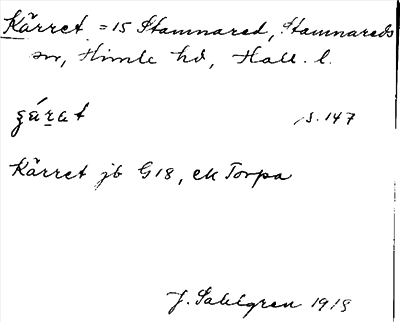 Kärret = 15 Stamnared, Stamnareds
sn, Himle hd, Hall. l.
çárat s. 147
Kärret jb G18, ek Torpa
J. Sahlgren 1918